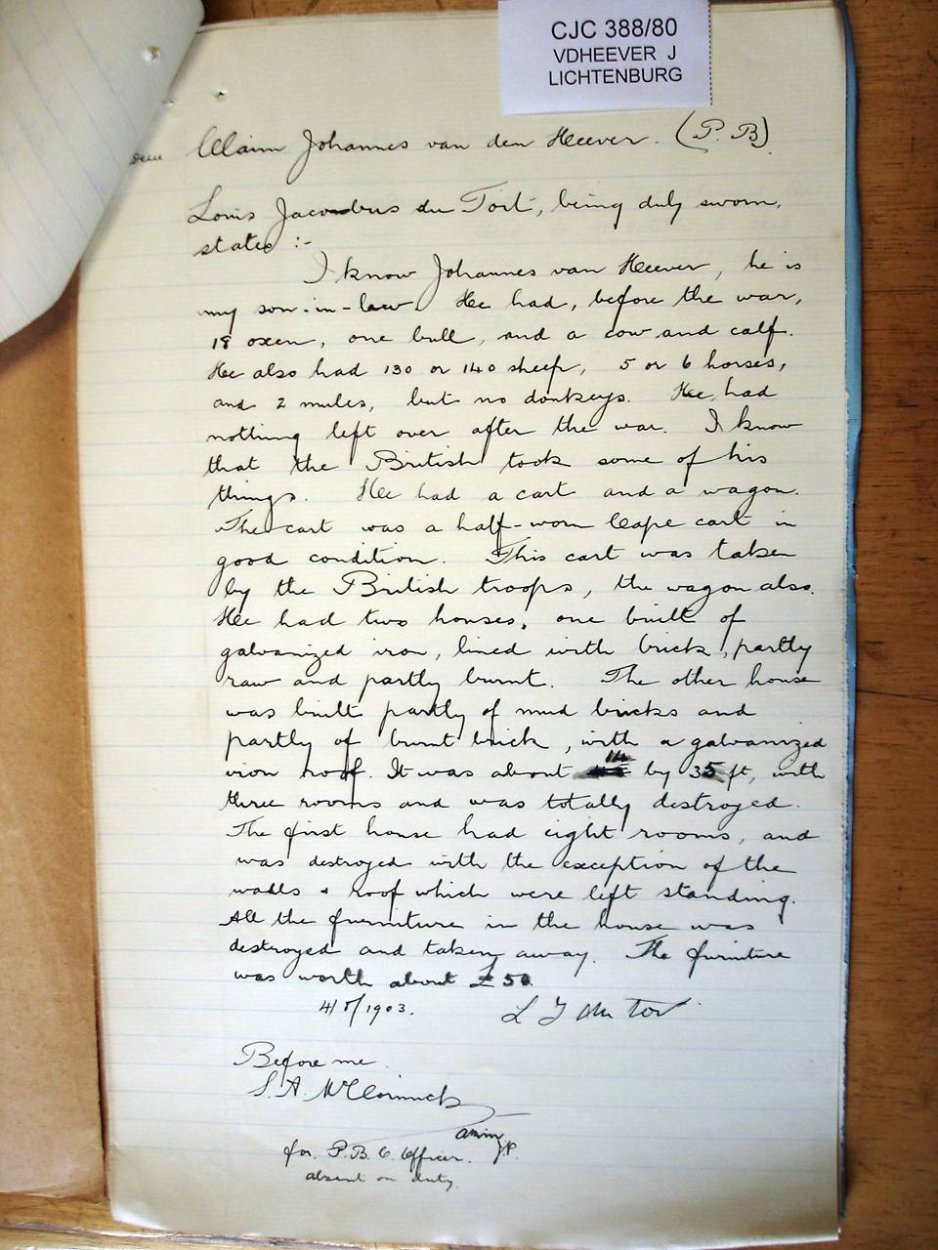 CJC 388/80
VDHEEVER J
LICHTENBURG
Claim Johannes van den Heever. (P. B)
Louis Jacobus du Toit, being duly sworn,
states :-
I know Johannes van Heever, he is
my son-in-law. He had, before the war,
18 oxen, one bull, and a cow and calf.
He also had 130 or 140 sheep, 5 or 6 horses,
and 2 mules, but no donkeys. He had
nothing left over after the war. I know
that the British took some of his
things. He had a cart and a wagon.
The cart was a half-worn Cape cart in
good condition. This cart was taken
by the British troops, the wagon also.
He had two houses, one built of
galvanized iron, lined with brick, partly
raw and partly burnt. The other house
was built partly of mud bricks and
partly of burnt brick, with a galvanized
iron roof. It was about 14 by 35 ft, with
three rooms and was totally destroyed.
The first house had eight rooms, and
was destroyed with the exception of the
walls & roof which were left standing.
All the furniture in the house was
destroyed and taken away. The furniture
was worth about £50.
4/5/1903. L J du Toit
Before me
S. A. McCormick
JP.
for P. B. C. Officer.
absent on duty.